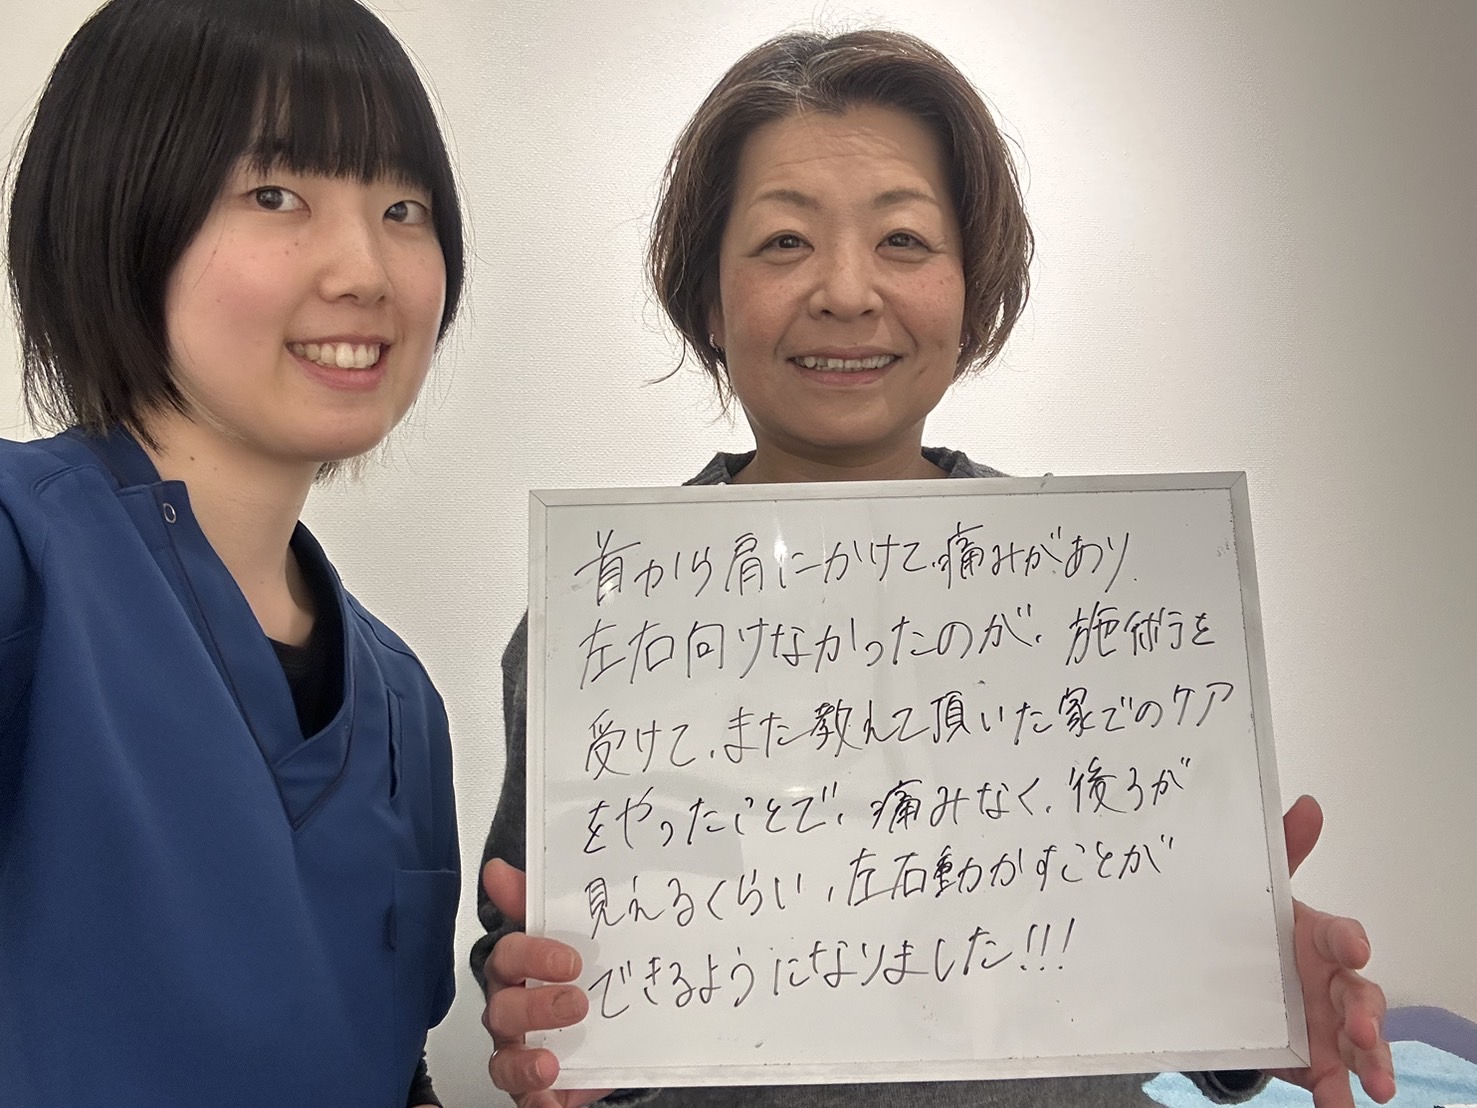 首から肩にかけて、痛みがあり
左右向けなかったのが、施術を
受けて、また教えて頂いた家でのケア
をやったことで、痛みなく、後ろが
見えるくらい、左右動かすことが
できるようになりました!!!